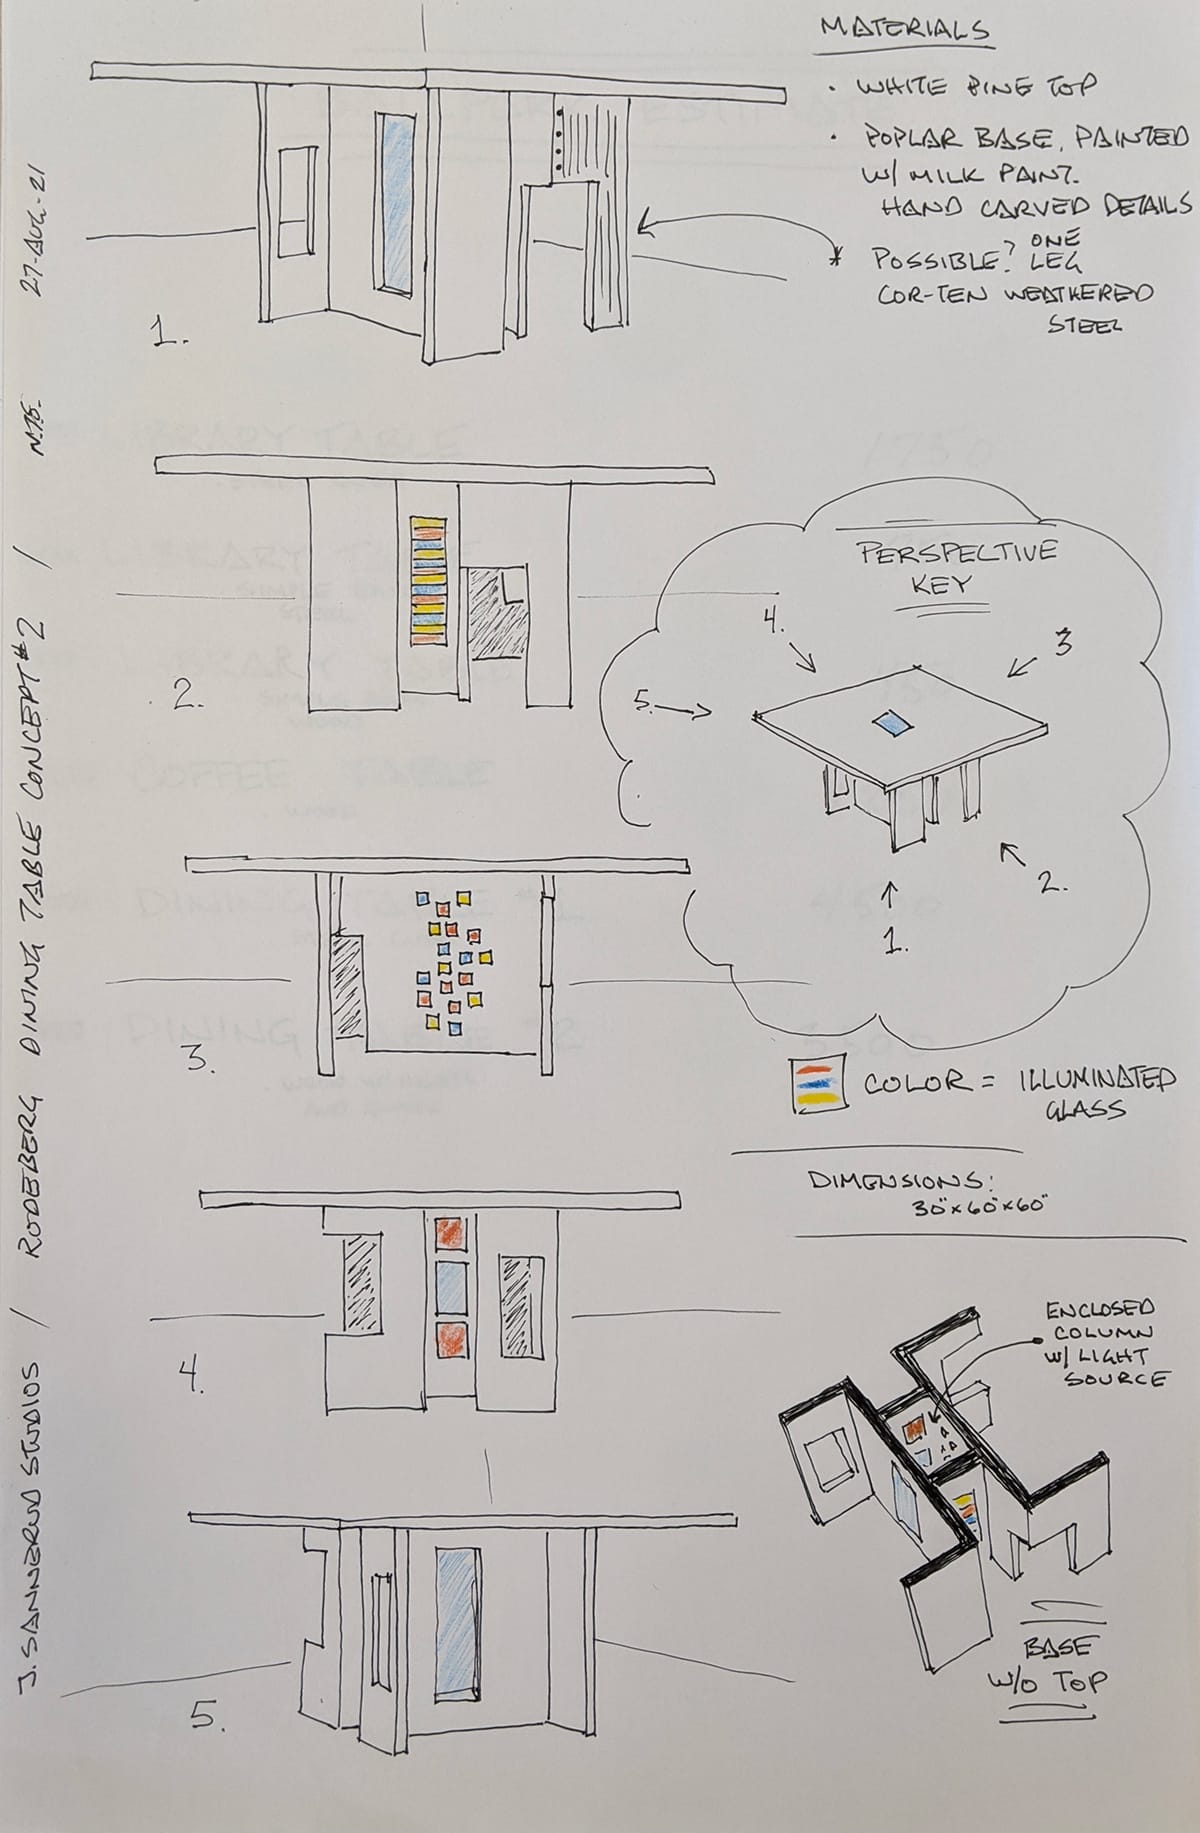 MATERIALS
• WHITE PINE TOP
• POPLAR BASE, PAINTED
W/ MILK PAINT.
HAND CARVED DETAILS
* POSSIBLE? ONE
LEG
COR-TEN WEATHERED
STEEL
1.
2.
3.
4.
5.
PERSPECTIVE
KEY
4.
3
5.
2.
1.
COLOR = ILLUMINATED
GLASS
DIMENSIONS:
30"x60"x60"
ENCLOSED
COLUMN
W/ LIGHT
SOURCE
BASE
W/O TOP
J. SANNERUD STUDIOS / RODEBERG DINING TABLE CONCEPT #2 / N.T.S. 27-AUG-21
LIBRARY TABLE
COFFEE TABLE
DINING TABLE #1
DINING TABLE #2